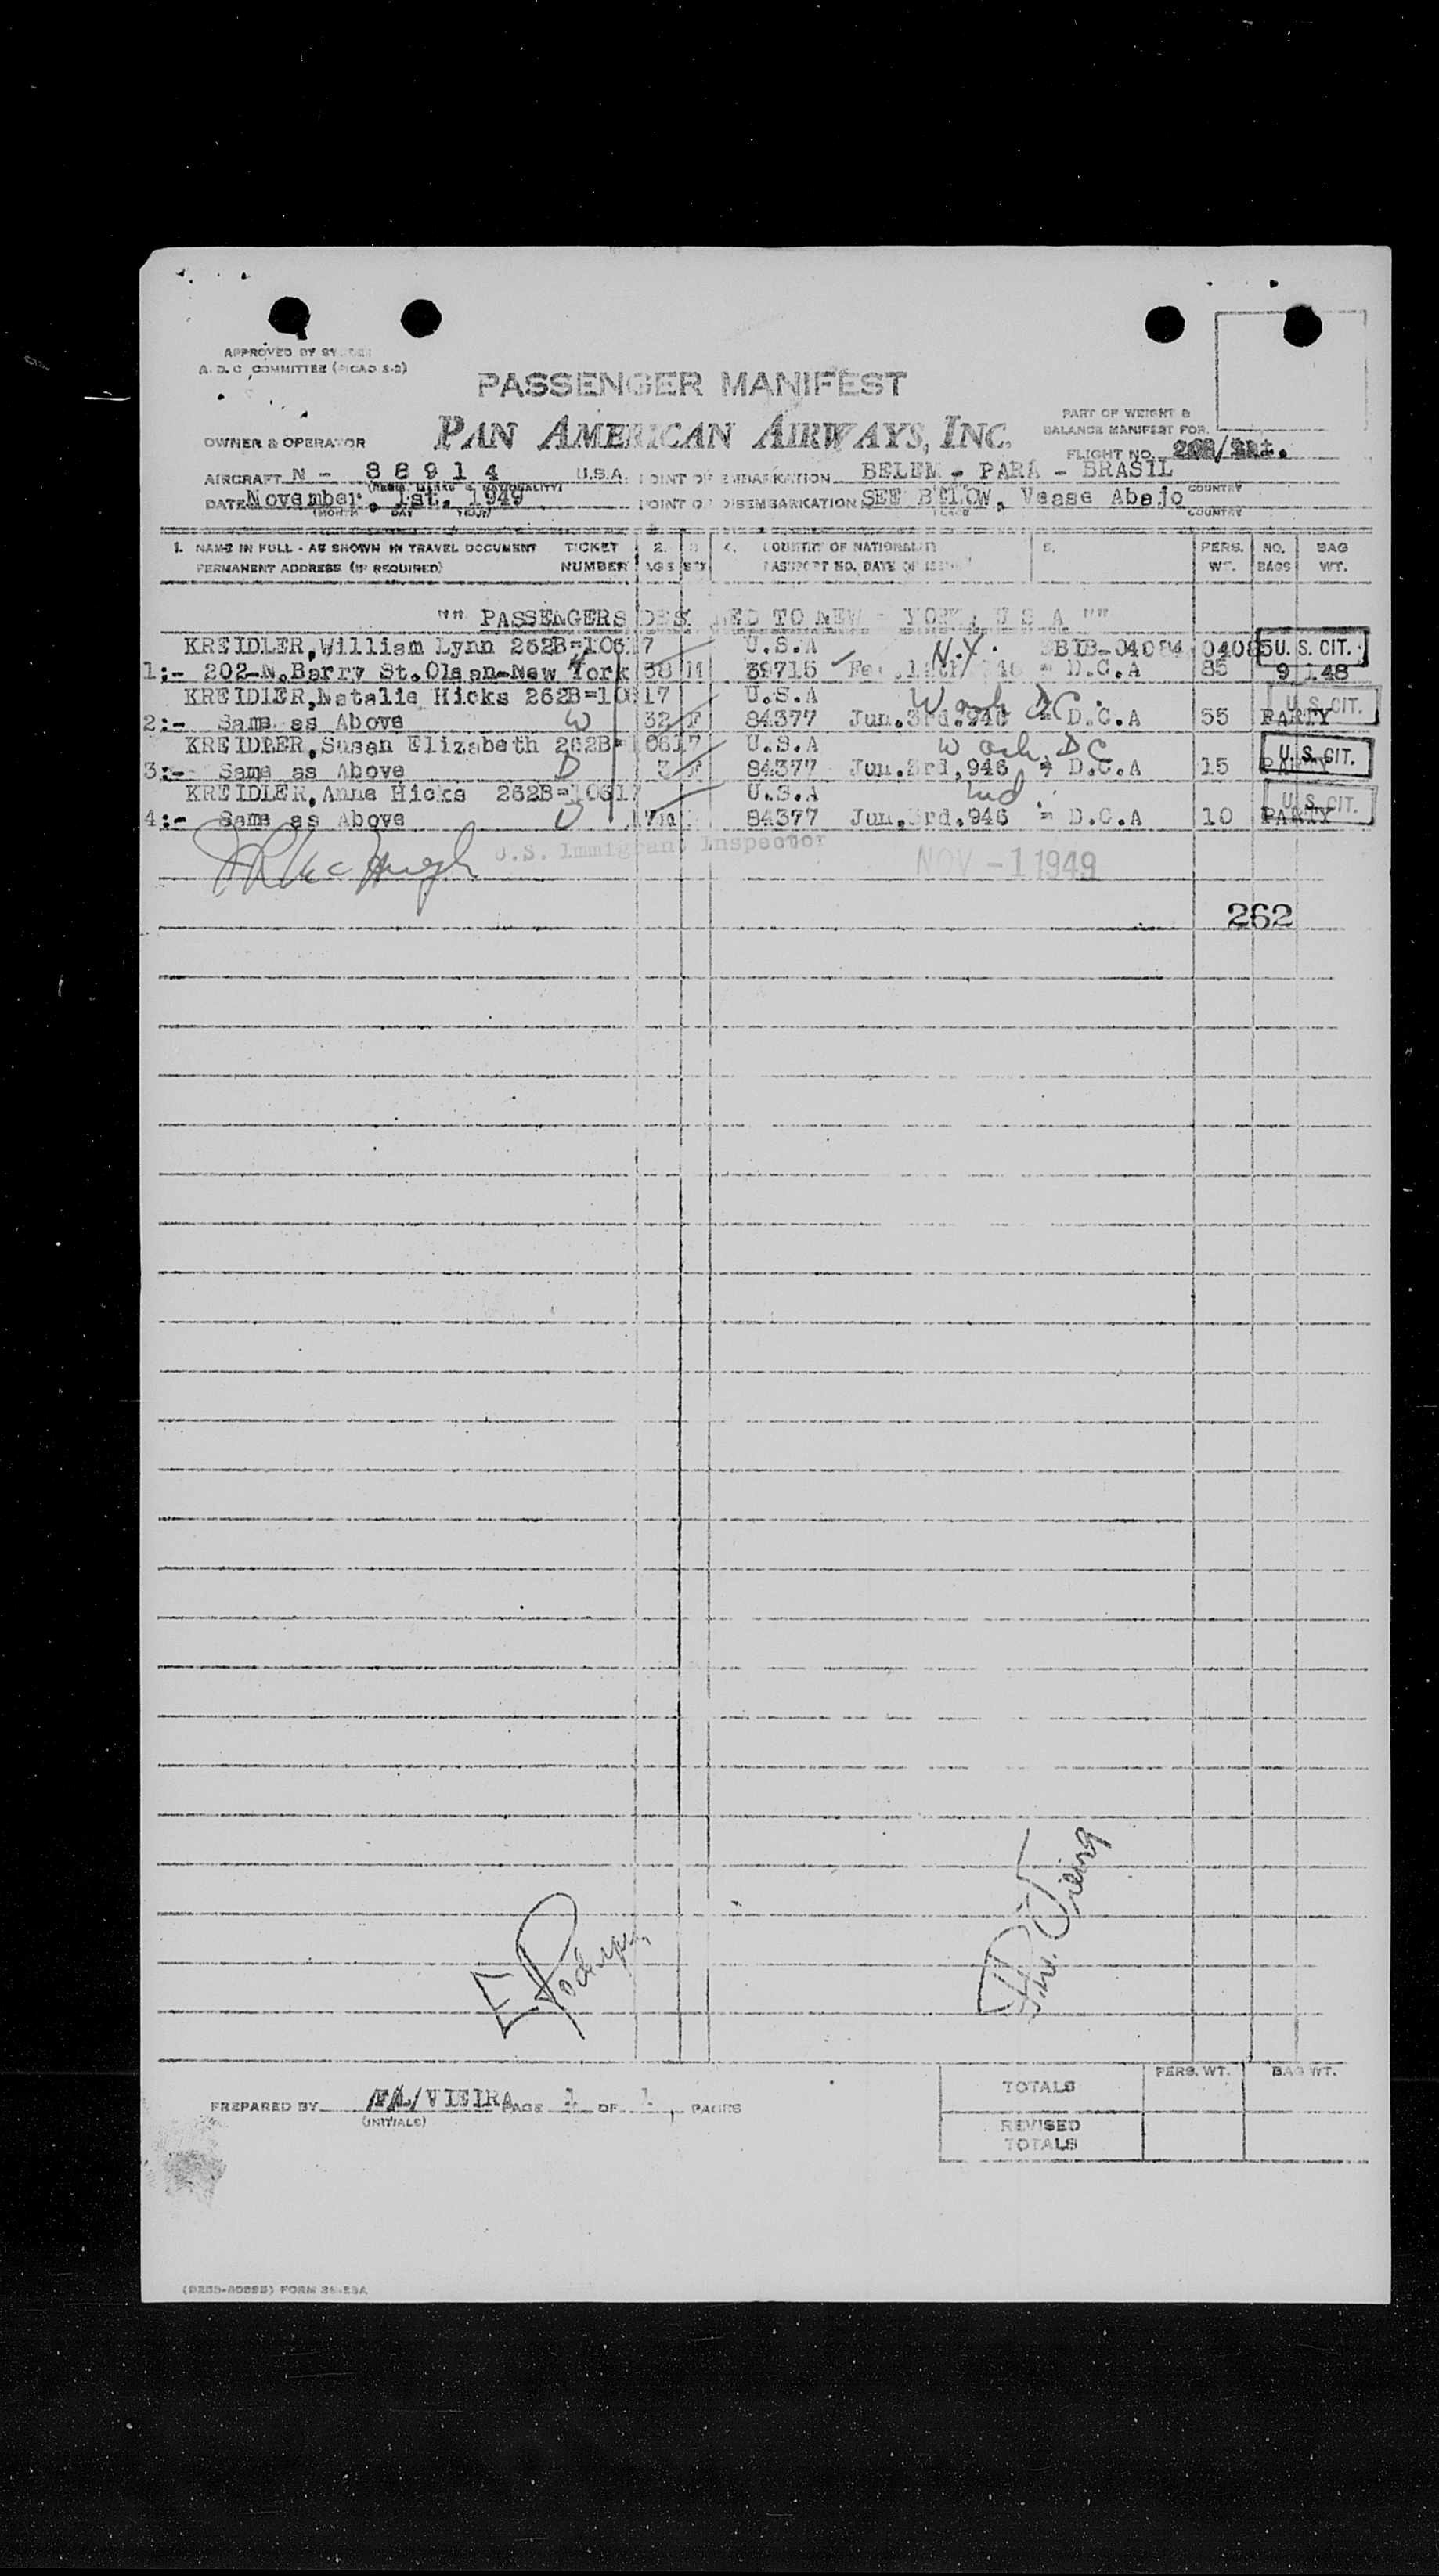 APPROVED BY
A. D. C. COMMITTEE
PASSENGER MANIFEST
PAN AMERICAN AIRWAYS, INC.
PART OF WEIGHT &
BALANCE MANIFEST FOR
OWNER & OPERATOR
FLIGHT NO.
AIRCRAFT N - 88914 U.S.A. POINT OF EMBARKATION BELEM - PARA - BRASIL
(REGIS. MARKS & NATIONALITY) COUNTRY
DATE November. 1st. 1949 POINT OF DISEMBARKATION SEE BELOW, Vease Abajo
(MONTH DAY YEAR) PLACE COUNTRY
1. NAME IN FULL - AS SHOWN IN TRAVEL DOCUMENT TICKET 2. 3 4. COUNTRY OF NATIONALITY 5. PERS. NO. BAG
PERMANENT ADDRESS (IF REQUIRED) NUMBER AGE SEX PASSPORT NO. DATE OF WT. BAGS WT.
"" PASSENGERS DESTINED TO NEW - YORK, U S A ""
KREIDLER, William Lynn 262B=10617 U.S.A N.Y. BIB-04084 04085 U. S. CIT.
1:- 202-N.Barry St.Olean-New York 38 M 39715 D.C.A 85 9 148
KREIDLER, Natalie Hicks 262B=10617 U.S.A Wash DC. U. S. CIT.
2:- Same as Above W 32 F 84377 Jun.3rd.946 = D.C.A 55 PARTY
KREIDLER, Susan Elizabeth 262B=10617 U.S.A Wash, DC U. S. CIT.
3:- Same as Above D 3 F 84377 Jun.3rd,946 = D.C.A 15
KREIDLER, Anne Hicks 262B=10617 U.S.A Md. U. S. CIT.
4:- Same as Above D 7m 84377 Jun.3rd.946 = D.C.A 10 PARTY
U.S. Immigrant Inspector
McHugh NOV - 1 1949
262
E Rodrigues
Vieira
PERS. WT. BAG WT.
TOTALS
PREPARED BY VIEIRA PAGE 1 OF 1, PAGES
(INITIALS)
REVISED
TOTALS